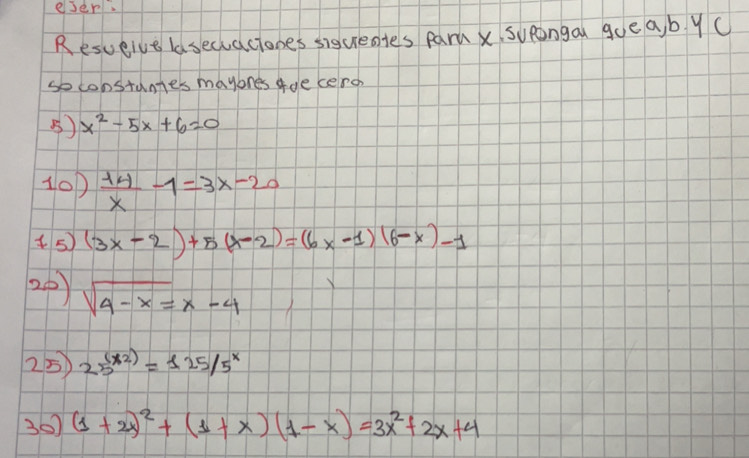 ejer:
Resuelve lasecuaciones siguientes para x. Suponga que a,b. y C
so constantes mayores que cero
5) x² - 5x + 6 = 0
10) 14/x - 1 = 3x - 20
15) (3x - 2) + 5(x - 2) = (6x - 1)(6 - x) - 1
20) √(4 - x) = x - 4
25) 25^(x2) = 125/5^x
30) (1 + 2x)² + (1 + x)(1 - x) = 3x² + 2x + 4